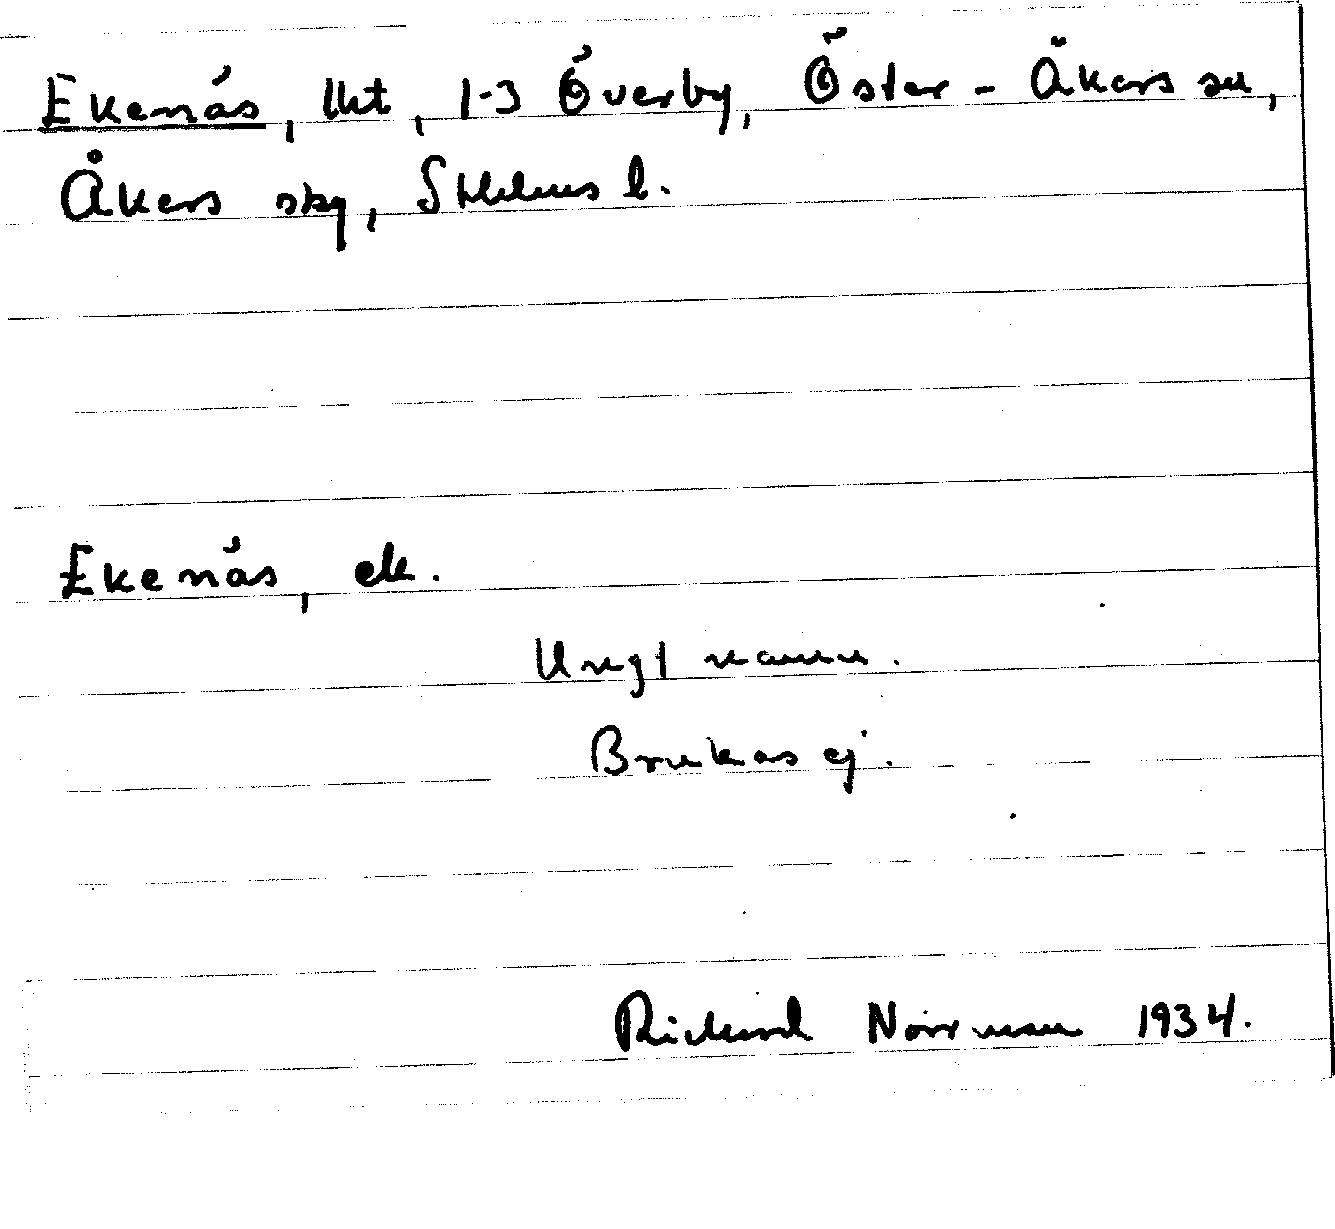 Ekenäs, lht, 1-3 Överby, Öster-Åkers sn,
Åkers skg, Sthlms l.
Ekenäs, ek.
Ungt namn.
Brukas ej.
Rickard Norrman 1934.